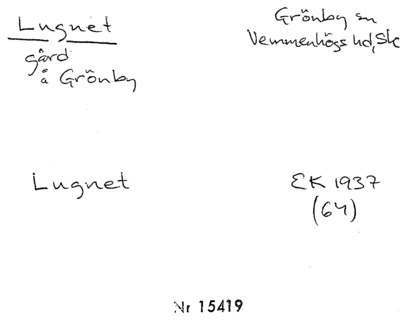 Lugnet
gård
å Grönby
Grönby sn
Vemmenhögs hd, Sk
Lugnet
EK 1937
(64)
Nr 15419